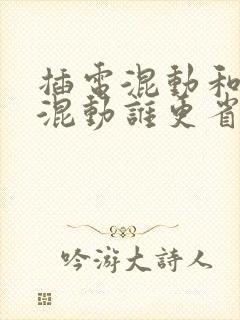 插電混動和
混動誰更省
吟游大詩人